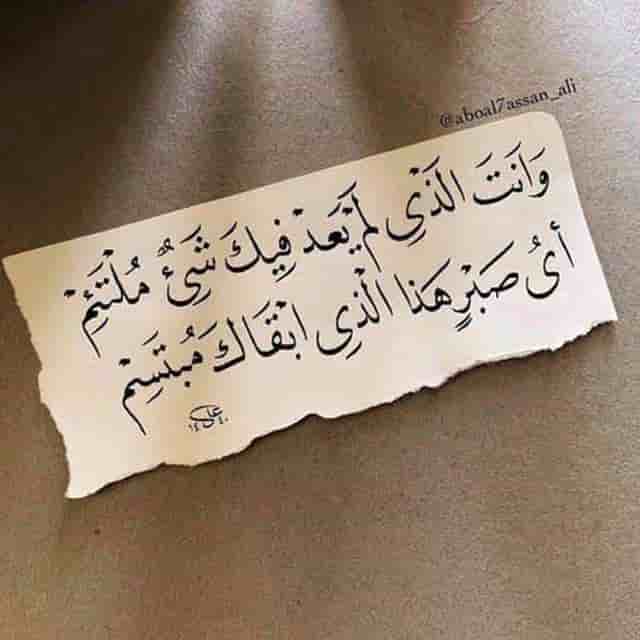 @aboal7assan_ali
وَانَتَ الَّذِى لَمْ يَعَدْ فِيكَ شَئٌ مُلْتَئِمْ
أىُ صَبْرٍ هَذا الَّذِى ابْقَاكَ مُبتَسِمْ
على